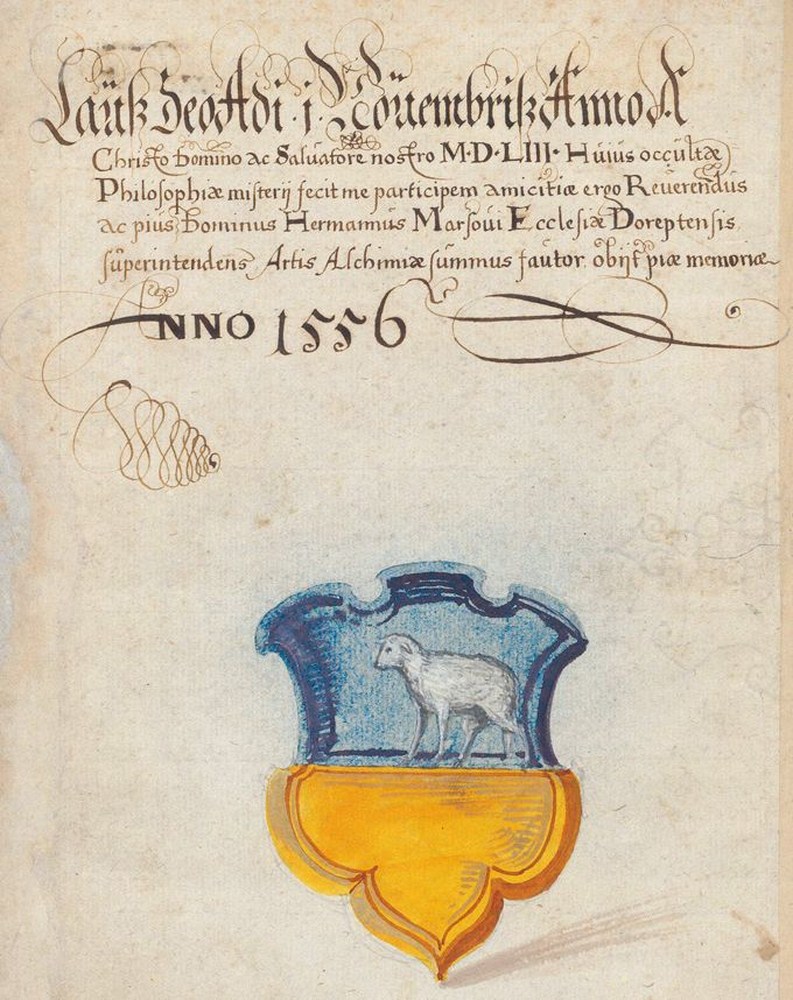 Laüß Deo Adi · j · Nouembriß Anno A
Christo Domino ac Saluatore nostro M·D·LIII· Hüius occültæ
Philosophiæ misterij fecit me participem amicitiæ ergo Reuerendüs
ac piüs Dominus Hermannüs Marsoüi Ecclesiæ Doreptensis
süperintendens Artis Alchimiæ summus fautor obijt piæ memoriæ
ANNO 1556